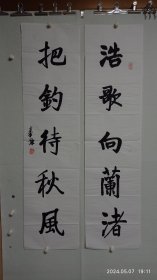 浩歌向蘭渚
把釣待秋風
2024.05.07 19:11